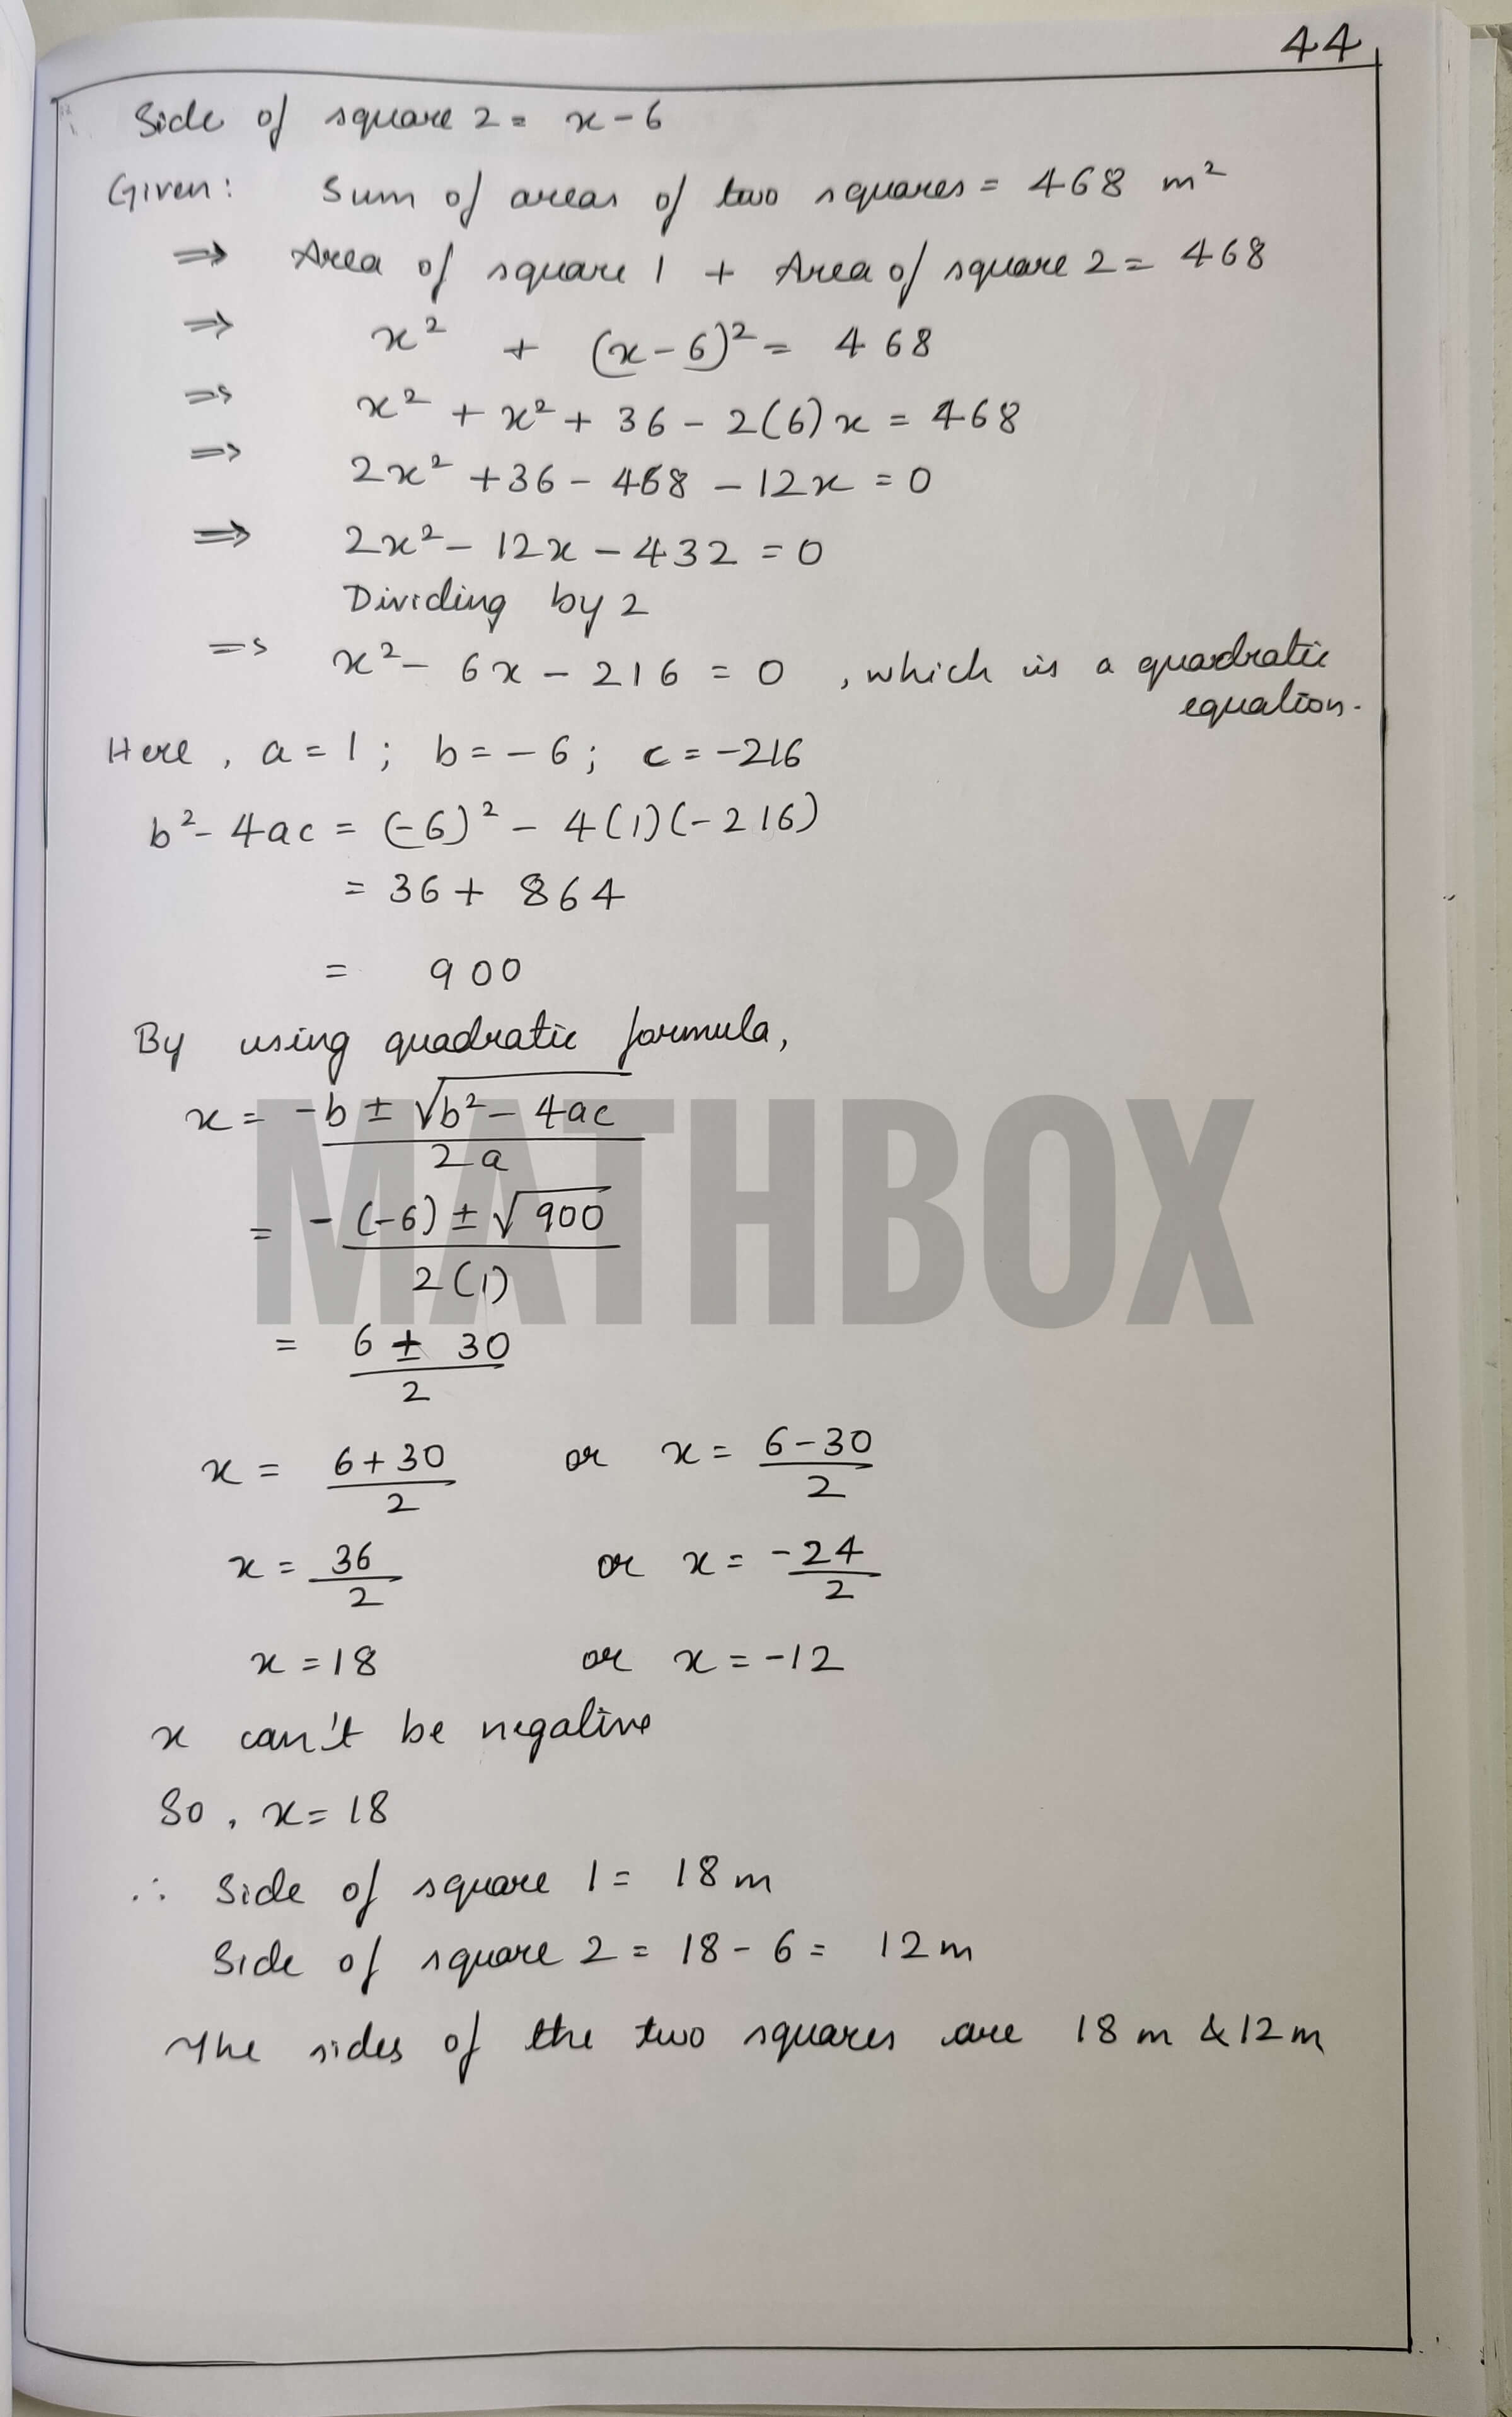 44
Side of square 2 = x - 6
Given: Sum of areas of two squares = 468 m²
⇒ Area of square 1 + Area of square 2 = 468
⇒ x² + (x - 6)² = 468
⇒ x² + x² + 36 - 2(6)x = 468
⇒ 2x² + 36 - 468 - 12x = 0
⇒ 2x² - 12x - 432 = 0
Dividing by 2
⇒ x² - 6x - 216 = 0, which is a quadratic
equation.
Here, a = 1; b = -6; c = -216
b² - 4ac = (-6)² - 4(1)(-216)
= 36 + 864
= 900
By using quadratic formula,
x = -b ± √b² - 4ac
2a
= -(-6) ± √900
2(1)
= 6 ± 30
2
x = 6+30 or x = 6-30
2 2
x = 36 or x = -24
2 2
x = 18 or x = -12
x can't be negative
So, x = 18
∴ Side of square 1 = 18 m
Side of square 2 = 18 - 6 = 12 m
The sides of the two squares are 18 m & 12 m
MATHBOX